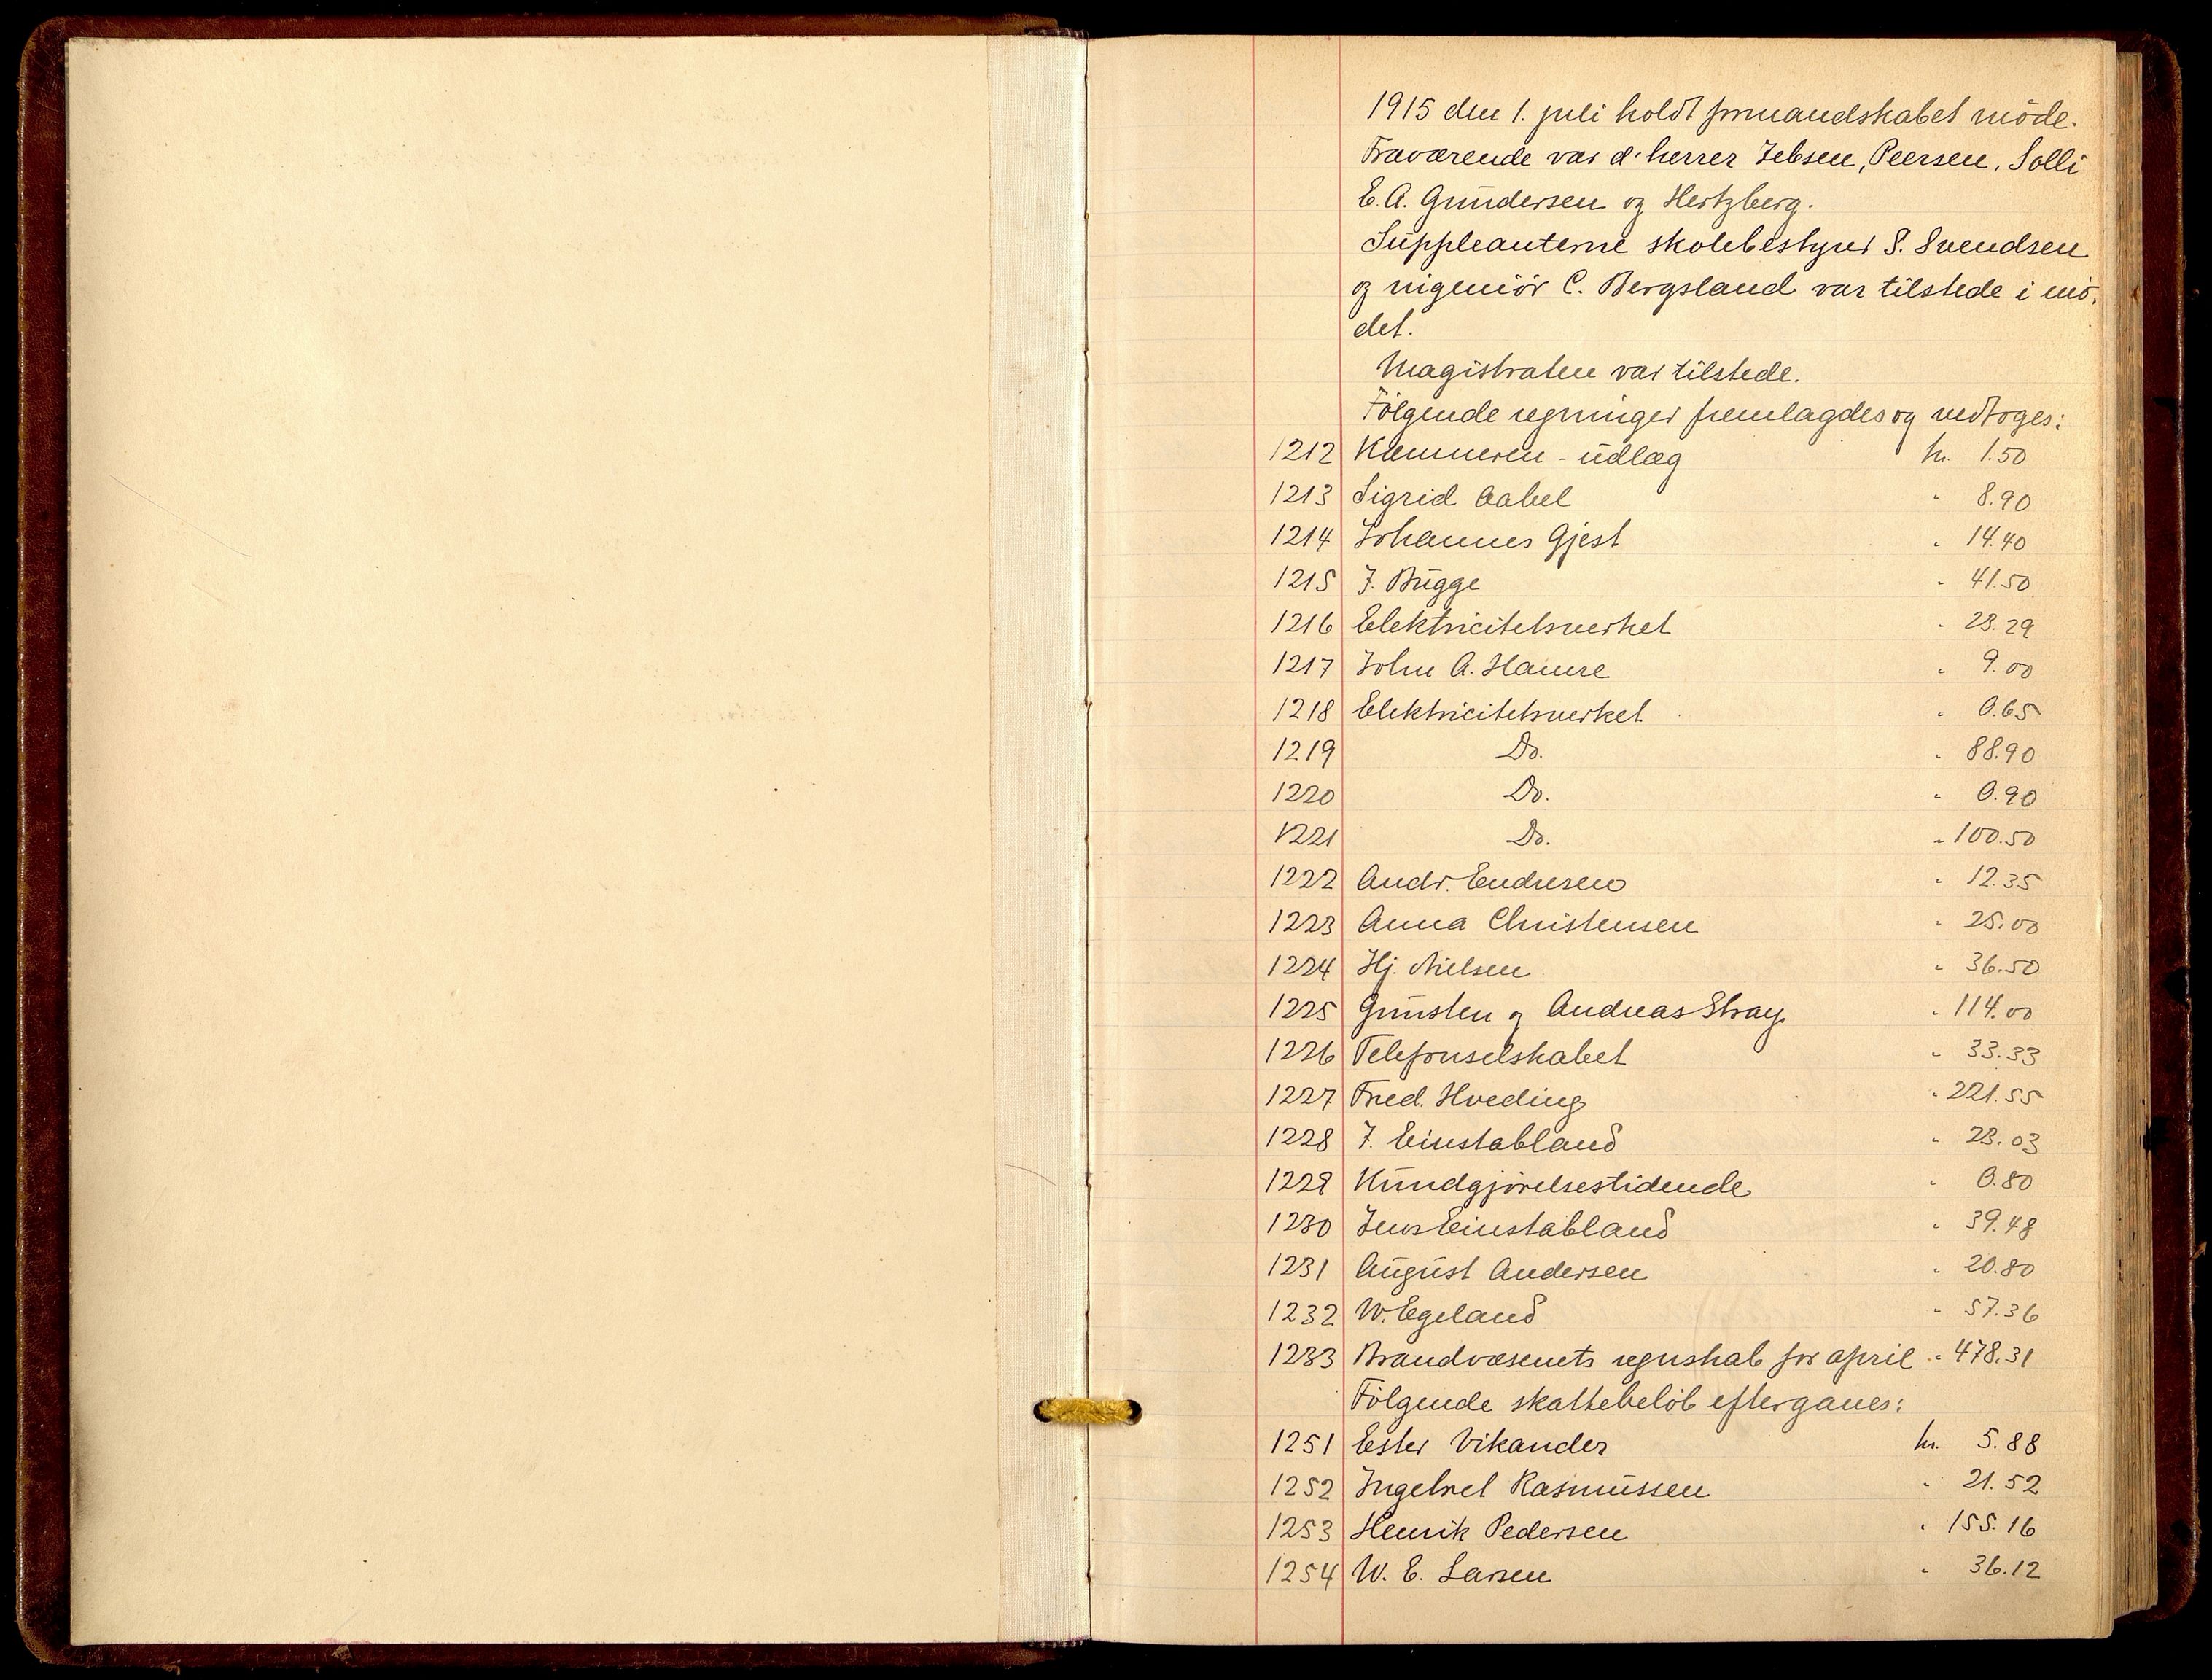 1915 den 1. juli holdt formandskabet möde.
Fraværende var d'herrer Jebsen, Peersen, Solli
E. A. Gundersen og Hertzberg.
Suppleanterne skolebestyrer S. Svendsen
og ingeniör C. Bergsland var tilstede i mö-
det.
Magistraten var tilstede.
Fölgende regninger fremlagdes og vedtoges:
1212 Kæmneren - udlæg kr. 1.50
1213 Sigrid Aabel " 8.90
1214 Johannes Gjest " 14.40
1215 J. Bugge " 41.50
1216 Elektricitetsverket " 23.29
1217 John A. Hamre " 9.00
1218 Elektricitetsverket " 0.65
1219 Do. " 88.90
1220 Do. " 0.90
1221 Do. " 100.50
1222 Andr. Endresen " 12.35
1223 Anna Christensen " 25.00
1224 Hj. Nielsen " 36.50
1225 Gunsten og Andreas Stray " 114.00
1226 Telefonselskabet " 33.33
1227 Fred. Hveding " 221.55
1228 J. Einstabland " 23.03
1229 Kundgjörelsestidende " 0.80
1230 Jens Einstabland " 39.48
1231 August Andersen " 20.80
1232 W. Egeland " 57.36
1233 Brandvæsenets regnskab for april " 478.31
Fölgende skattebelöb eftergaves:
1251 Ester Vikander kr. 5.88
1252 Ingebret Rasmussen " 21.52
1253 Henrik Pedersen " 155.16
1254 W. E. Larsen " 36.12